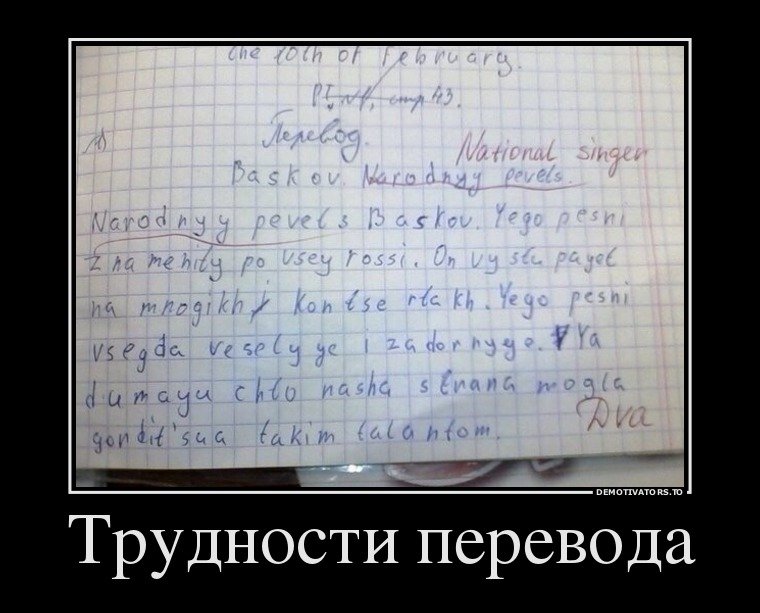 the 10th of February.
стр 43.
1) Перевод.
National singer
Baskov. Narodnyy pevets.
Narodnyy pevets Baskov. Yego pesni
znamenity po vsey rossi. On vystupayet
na mnogikh kontsertakh. Yego pesni
vsegda veselyye i zadornyye. Ya
dumayu chto nasha strana mogla
gordit'sua takim talantom.
Dva
DEMOTIVATORS.TO
Трудности перевода